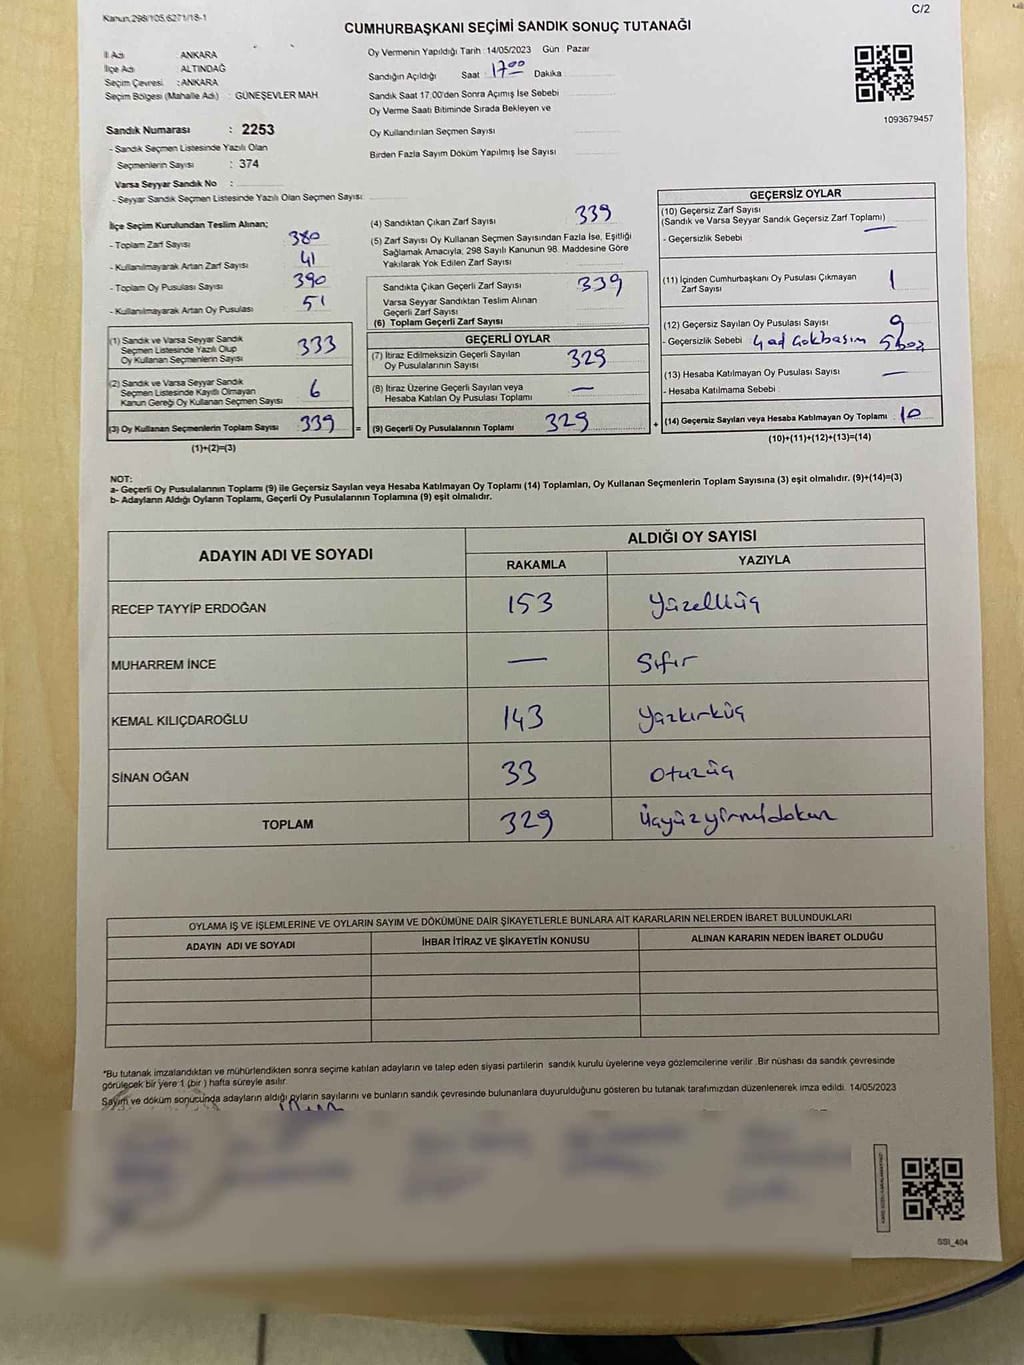 Kanun,298/105,6271/18-1
C/2
CUMHURBAŞKANI SEÇİMİ SANDIK SONUÇ TUTANAĞI
İl Adı ANKARA
İlçe Adı ALTINDAĞ
Seçim Çevresi : ANKARA
Seçim Bölgesi (Mahalle Adı) : GÜNEŞEVLER MAH.
Oy Vermenin Yapıldığı Tarih : 14/05/2023 Gün : Pazar
Sandığın Açıldığı Saat : 17.00 Dakika
Sandık Saat 17.00'den Sonra Açımış İse Sebebi
Oy Verme Saati Bitiminde Sırada Bekleyen ve
Oy Kullandırılan Seçmen Sayısı
Birden Fazla Sayım Döküm Yapılmış İse Sayısı
1093679457
Sandık Numarası : 2253
- Sandık Seçmen Listesinde Yazılı Olan
Seçmenlerin Sayısı : 374
Varsa Seyyar Sandık No :
- Seyyar Sandık Seçmen Listesinde Yazılı Olan Seçmen Sayısı:
İlçe Seçim Kurulundan Teslim Alınan;
- Toplam Zarf Sayısı 380
- Kullanılmayarak Artan Zarf Sayısı 41
- Toplam Oy Pusulası Sayısı 390
- Kullanılmayarak Artan Oy Pusulası 51
(1) Sandık ve Varsa Seyyar Sandık
Seçmen Listesinde Yazılı Olup
Oy Kullanan Seçmenlerin Sayısı 333
(2) Sandık ve Varsa Seyyar Sandık
Seçmen Listesinde Kayıtlı Olmayan
Kanun Gereği Oy Kullanan Seçmen Sayısı 6
(3) Oy Kullanan Seçmenlerin Toplam Sayısı 339 =
(1)+(2)=(3)
(4) Sandıktan Çıkan Zarf Sayısı 339
(5) Zarf Sayısı Oy Kullanan Seçmen Sayısından Fazla İse, Eşitliği
Sağlamak Amacıyla, 298 Sayılı Kanunun 98. Maddesine Göre
Yakılarak Yok Edilen Zarf Sayısı
Sandıkta Çıkan Geçerli Zarf Sayısı 339
Varsa Seyyar Sandıktan Teslim Alınan
Geçerli Zarf Sayısı
(6) Toplam Geçerli Zarf Sayısı
GEÇERLİ OYLAR
(7) İtiraz Edilmeksizin Geçerli Sayılan
Oy Pusulalarının Sayısı 329
(8) İtiraz Üzerine Geçerli Sayılan veya
Hesaba Katılan Oy Pusulası Toplamı —
(9) Geçerli Oy Pusulalarının Toplamı 329 +
GEÇERSİZ OYLAR
(10) Geçersiz Zarf Sayısı
(Sandık ve Varsa Seyyar Sandık Geçersiz Zarf Toplamı) —
- Geçersizlik Sebebi
(11) İçinden Cumhurbaşkanı Oy Pusulası Çıkmayan
Zarf Sayısı 1
(12) Geçersiz Sayılan Oy Pusulası Sayısı 9
- Geçersizlik Sebebi 4 ad çokbasım 5 boş
(13) Hesaba Katılmayan Oy Pusulası Sayısı —
- Hesaba Katılmama Sebebi
(14) Geçersiz Sayılan veya Hesaba Katılmayan Oy Toplamı : 10
(10)+(11)+(12)+(13)=(14)
NOT:
a- Geçerli Oy Pusulalarının Toplamı (9) ile Geçersiz Sayılan veya Hesaba Katılmayan Oy Toplamı (14) Toplamları, Oy Kullanan Seçmenlerin Toplam Sayısına (3) eşit olmalıdır. (9)+(14)=(3)
b- Adayların Aldığı Oyların Toplamı, Geçerli Oy Pusulalarının Toplamına (9) eşit olmalıdır.
ADAYIN ADI VE SOYADI
ALDIĞI OY SAYISI
RAKAMLA YAZIYLA
RECEP TAYYİP ERDOĞAN 153 Yüzelliüç
MUHARREM İNCE — Sıfır
KEMAL KILIÇDAROĞLU 143 Yüzkırküç
SİNAN OĞAN 33 Otuzüç
TOPLAM 329 Üçyüzyirmidokuz
OYLAMA İŞ VE İŞLEMLERİNE VE OYLARIN SAYIM VE DÖKÜMÜNE DAİR ŞİKAYETLERLE BUNLARA AİT KARARLARIN NELERDEN İBARET BULUNDUKLARI
ADAYIN ADI VE SOYADI İHBAR İTİRAZ VE ŞİKAYETİN KONUSU ALINAN KARARIN NEDEN İBARET OLDUĞU
*Bu tutanak imzalandıktan ve mühürlendikten sonra seçime katılan adayların ve talep eden siyasi partilerin sandık kurulu üyelerine veya gözlemcilerine verilir .Bir nüshası da sandık çevresinde
görülecek bir yere 1 (bir ) hafta süreyle asılır.
Sayım ve döküm sonucunda adayların aldığı oyların sayılarını ve bunların sandık çevresinde bulunanlara duyurulduğunu gösteren bu tutanak tarafımızdan düzenlenerek imza edildi. 14/05/2023
SSI_404